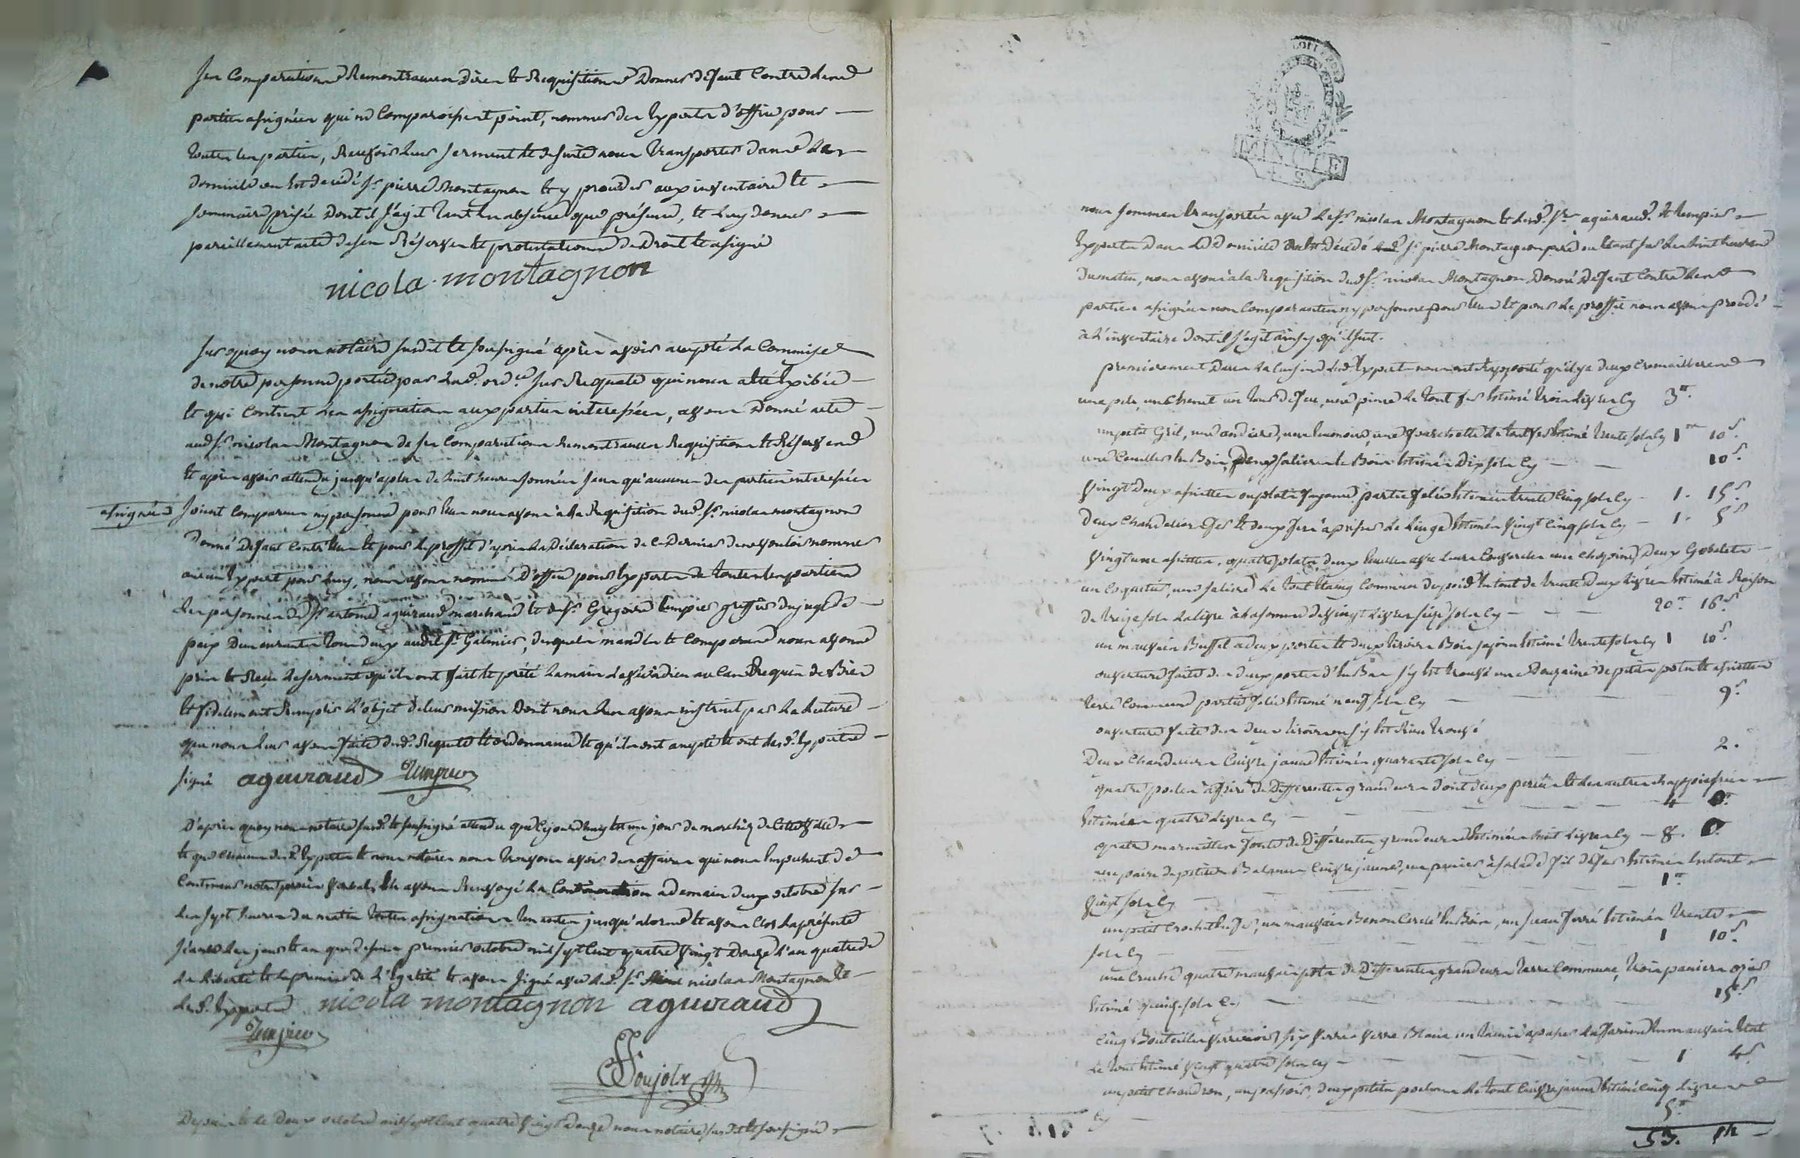 ses Comparutions Remontrances dires et Requisitions Donner defaut Contre les
parties assignées qui ne Comparoissent point, nommer des Experts d'office pour
toutes les parties, Recevoir leur serment et de suite nous transporter dans le
domicile ou est decedé Sr. pierre Montagnon et y proceder aux inventaire et
sommaire prisée Dont il s'agit tant en absence que présence, et luy donner
pareillement acte de ses Réserves et protestations de Droit et a signé
nicola montagnon
sur quoy nous notaire susdit et soussigné après avoir accepté la Commise
de notre personne portée par lad. ordce. sur Requete qui nous a été Exibée
et qui Contient les assignations aux parties interessées, avons Donné acte
aud. Sr. nicolas Montagnon de ses Comparutions Remontrances Requisitions et Réserves
et après avoir attendu jusqu'a plus de huit heures sonnées sans qu'aucune des parties interessées
assignées soient Comparues ny personne pour elles nous avons a la Requisition dud. Sr. nicolas montagnon
donné Defaut Contr'elles et pour le proffit d'après la Déclaration de ce Dernier de ne vouloir nommer
aucun Expert pour luy, nous avons nommé D'office pour Experts de toutes les parties
les personnes de Sr. antoine aguiraud marchand et de Sr. Gregoire tempier greffier du juge de
paix Demeurants tous deux audit St. Galmier, lesquels mandés et Comparus nous avons
pris et Reçu le serment qu'ils ont fait et prêté la main levée à dieu au Cas Requis de Bien
et fidelement Remplir l'objet de leur mission Dont nous les avons instruit par la lecture
que nous leur avons faite dud. Requete et ordonnance et qu'ils ont accepté et ont lesd. Experts
signé aguiraud tempier
D'après quoy nous notaire susd. et soussigné attendu que Cejourdhuy est un jour de marché de Cette ville
et que Chacun desd. Experts et nous notaire nous trouvons avoir des affaires qui nous Empechent de
Continuer notre procès verbal, en avons Renvoyé la Continuation a demain deux octobre sur
les sept heures du matin toutes assignations tenantes jusqu'alors et avons Clos la présente
séance les jour et an que dessus premier octobre mil sept Cent quatre vingt Douze l'an quatre de
la liberté et le premier de l'Egalité et avons signé avec led. Sr. nicolas Montagnon et
lesd. Experts nicola montagnon aguiraud
tempier
Soujols
Depuis et le Deux octobre mil sept Cent quatre vingt Douze nous notaire susdit et soussigné
nous sommes transportés avec led. Sr. nicolas Montagnon et lesd. Srs. aguiraud et tempier
Experts dans le domicile ou est décédé Sr. pierre Montagnon père ou étant sur les huit heures
du matin, nous avons à la Requisition dud. Sr. nicolas Montagnon Donné Defaut Contre les
parties assignées non Comparantes ny personne pour elles et pour le proffit nous avons procédé
à l'inventaire dont il s'agit ainsy qu'il suit.
premierement Dans la Cuisine lesd. Experts nous ont Rapporté qu'il y a deux Cremailleres
une pele, un Chenet un tour de feu, une pince le tout fer Estimé trois livres Cy 3tt.
un petit Gril, une andiere, une lumiere, une fourchette le tout fer Estimé trente sols Cy 1tt 10s.
une Cuillere de Bois, Deux salieres de Bois Estimés Dix sols Cy 10s.
vingt Deux assiettes ou plats fayance partie felés Estimés trente Cinq sols Cy 1. 15s.
Deux Chandeliers fer et deux fers à repasser le linge Estimés vingt Cinq sols Cy 1. 5s
vingt une assiettes, quatre plats, deux ecuelles avec leurs Couvercles une chopine, Deux Gobelets
un Coquetier, une saliere le tout Etaing Commun du poid en tout de trente deux livres Estimé à Raison
de treize sols la livre à la somme de vingt livres seize sols Cy 20tt 16s
un mauvais Buffet a deux portes et deux tiroirs Bois sapin Estimé trente sols Cy 1 10s
ouverture faite des deux portes d'En Bas s'y est trouvé une Douzaine de petits pots et assiettes
terre Commune partie felés Estimé neuf sols Cy 9s
ouverture faite des deux tiroirs ou s'y est Rien trouvé
Deux Chandeliers Cuivre jaune Estimés quarante sols Cy 2.
quatre poeles à frire de Differentes grandeurs dont deux percées et les autres rappiessées
Estimées quatre livres Cy 4 0s
quatre marmittes fonte de Différentes grandeurs Estimées huit livres Cy 8. 0s
une paire de petites Balances Cuivre jaune, un panier à salade fil de fer Estimés Entout
vingt sols Cy 1tt
un petit Crochet de fer, un mauvais Benon Cerclé En Bois, un seau ferré Estimés trente
sols Cy 1 10s.
une Cruche quatre mauvais pots de Differentes grandeurs terre Commune, trois paniers osier
Estimé quinze sols Cy 15s
Cinq Bouteilles verre noir, six verres verre Blanc un tamis à passer la farine En mauvais Etat
le tout Estimé vingt quatre sols Cy 1 4s
un petit Chaudron, un passoir, deux petits poelons le tout Cuivre jaune Estimé Cinq livres
Cy 5tt
53. 14